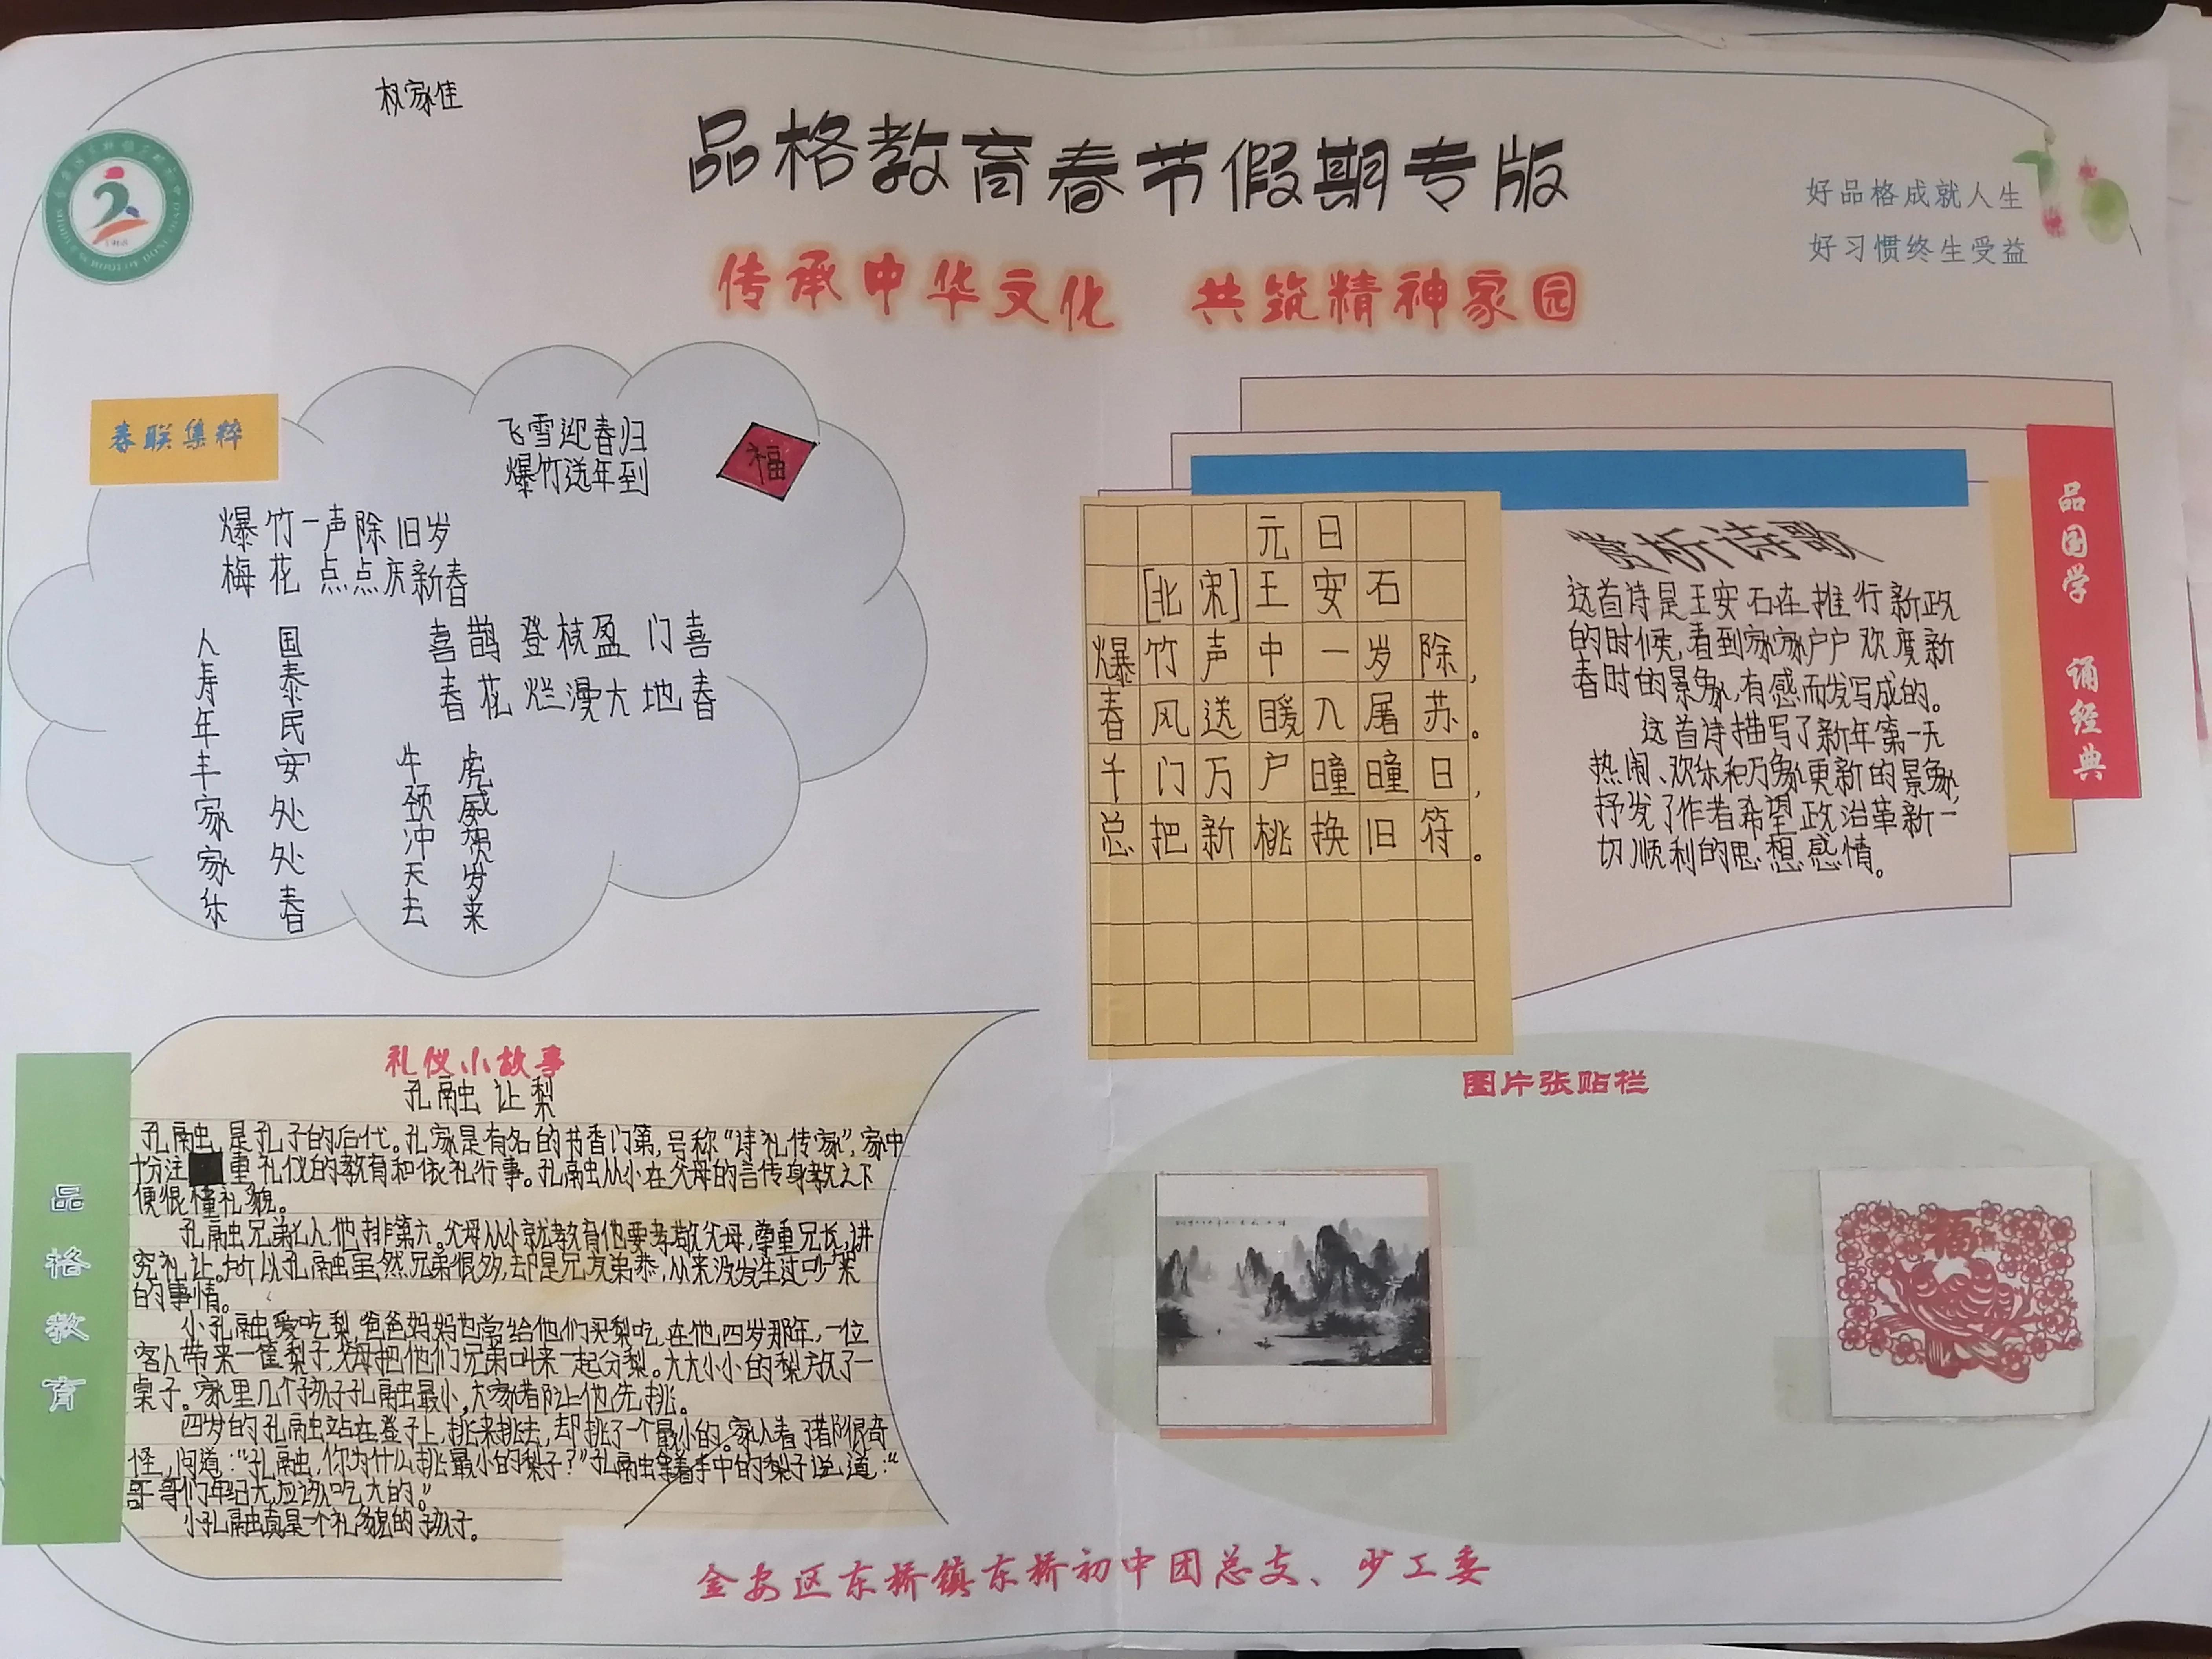 权家佳
品格教育春节假期专版
好品格成就人生
好习惯终生受益
传承中华文化 共筑精神家园
春联集粹
飞雪迎春归
爆竹送年到
福
爆竹一声除旧岁
梅花点点庆新春
喜鹊登枝盈门喜
春花烂漫大地春
人寿年丰家家乐
国泰民安处处春
牛颈冲天去
虎威贺岁来
品国学 诵经典
元日
[北宋]王安石
爆竹声中一岁除,
春风送暖入屠苏。
千门万户瞳瞳日,
总把新桃换旧符。
赏析诗歌
这首诗是王安石在推行新政
的时候,看到家家户户欢度新
春时的景象,有感而发写成的。
这首诗描写了新年第一天
热闹、欢乐和万象更新的景象,
抒发了作者希望政治革新一
切顺利的思想感情。
品格教育
礼仪小故事
孔融让梨
孔融,是孔子的后代。孔家是有名的书香门第,号称“诗礼传家”,家中
十分注重礼仪的教育和依礼行事。孔融从小在父母的言传身教之下
便很懂礼貌。
孔融兄弟七人,他排第六。父母从小就教育他要孝敬父母,尊重兄长,讲
究礼让。所以孔融虽然兄弟很多,却是兄友弟恭,从来没发生过吵架
的事情。
小孔融爱吃梨,爸爸妈妈也常给他们买梨吃,在他四岁那年,一位
客人带来一筐梨子,父母把他们兄弟叫来一起分梨。大大小小的梨放了一
桌子。家里几个孩子孔融最小,大家都让他先挑。
四岁的孔融站在登子上,挑来挑去,却挑了一个最小的。家人看了都很奇
怪,问道:“孔融,你为什么挑最小的梨子?”孔融拿着手中的梨子说道:“
哥哥们年纪大,应该吃大的。”
小孔融真是一个礼貌的孩子。
图片张贴栏
福
金安区东桥镇东桥初中团总支、少工委